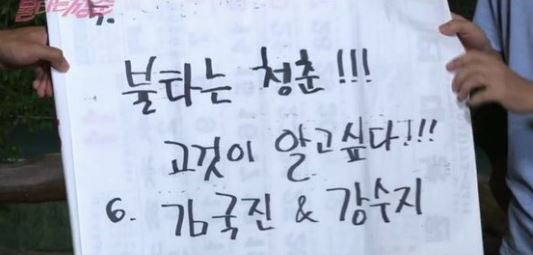 불타는 청춘!!!
그것이 알고싶다!!!
6. 김국진 & 강수지